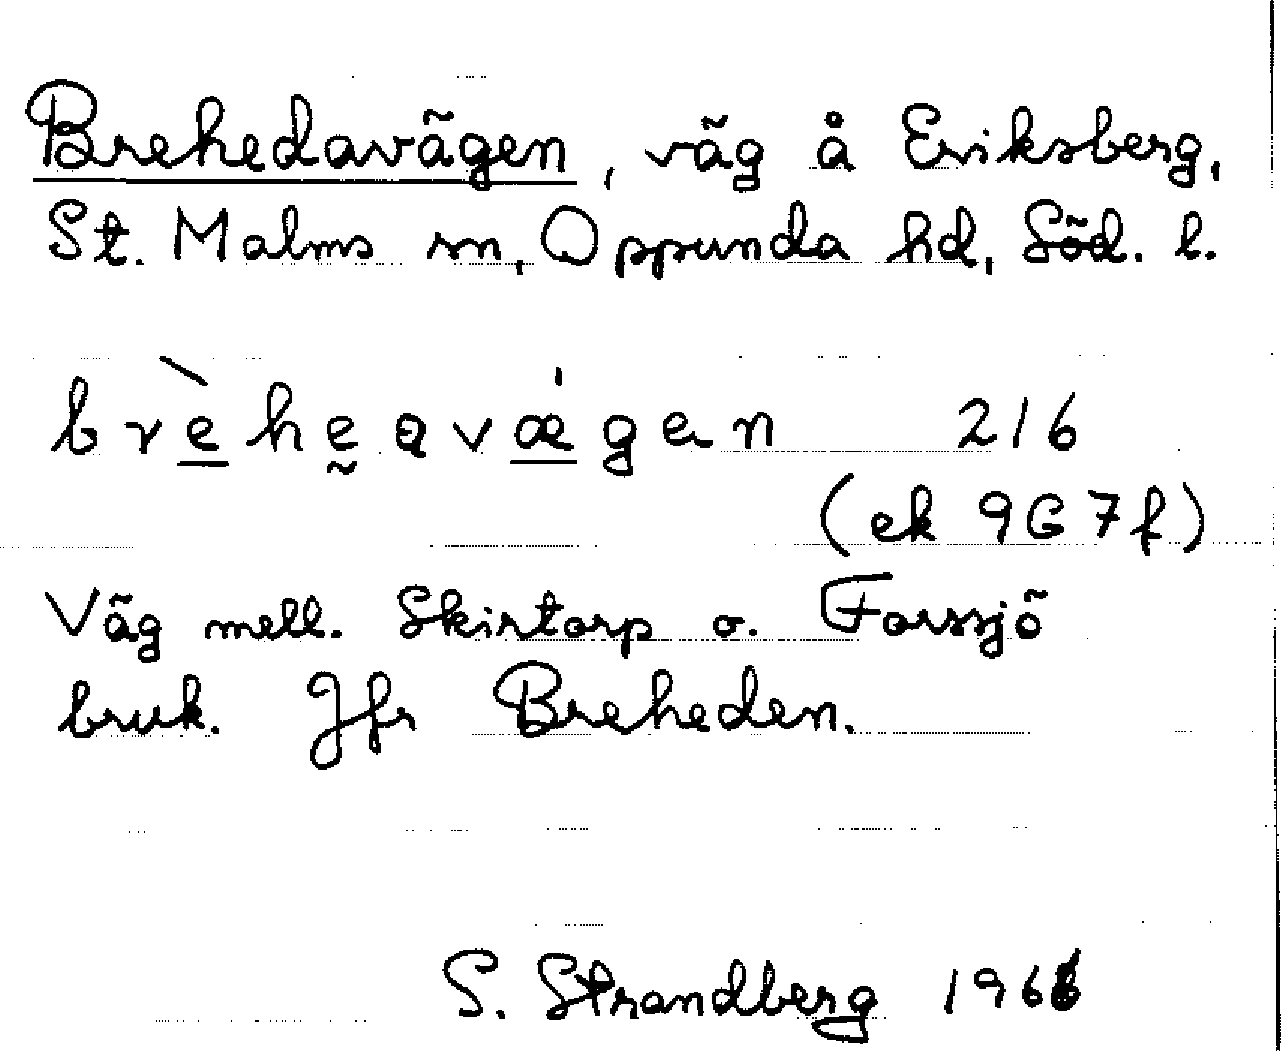 Brehedavägen, väg å Eriksberg,
St. Malms sn, Oppunda hd, Söd. l.
brèhḛavǽgen 216
(ek 9G7f)
Väg mell. Skirtorp o. Forssjö
bruk. Jfr Breheden.
S. Strandberg 1966